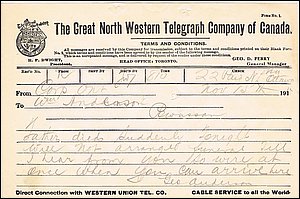 Form No. 1.
The Great North Western Telegraph Company of Canada.
TERMS AND CONDITIONS.
All messages are received by this Company for transmission, subject to the terms and conditions printed on their Blank Form
No. 1, which terms and conditions have been agreed to by the sender of the following message.
This is an unrepeated message, and is delivered by request of the sender under these conditions.
H. P. DWIGHT,
President.
HEAD OFFICE: TORONTO.
GEO. D. PERRY
General Manager
From
191
Wm Anderson
Father died suddenly tonight
will not arrange funeral till
I hear from you wire at
once when you can arrive here
Geo Anderson
Direct Connection with WESTERN UNION TEL. CO.
CABLE SERVICE to all the World